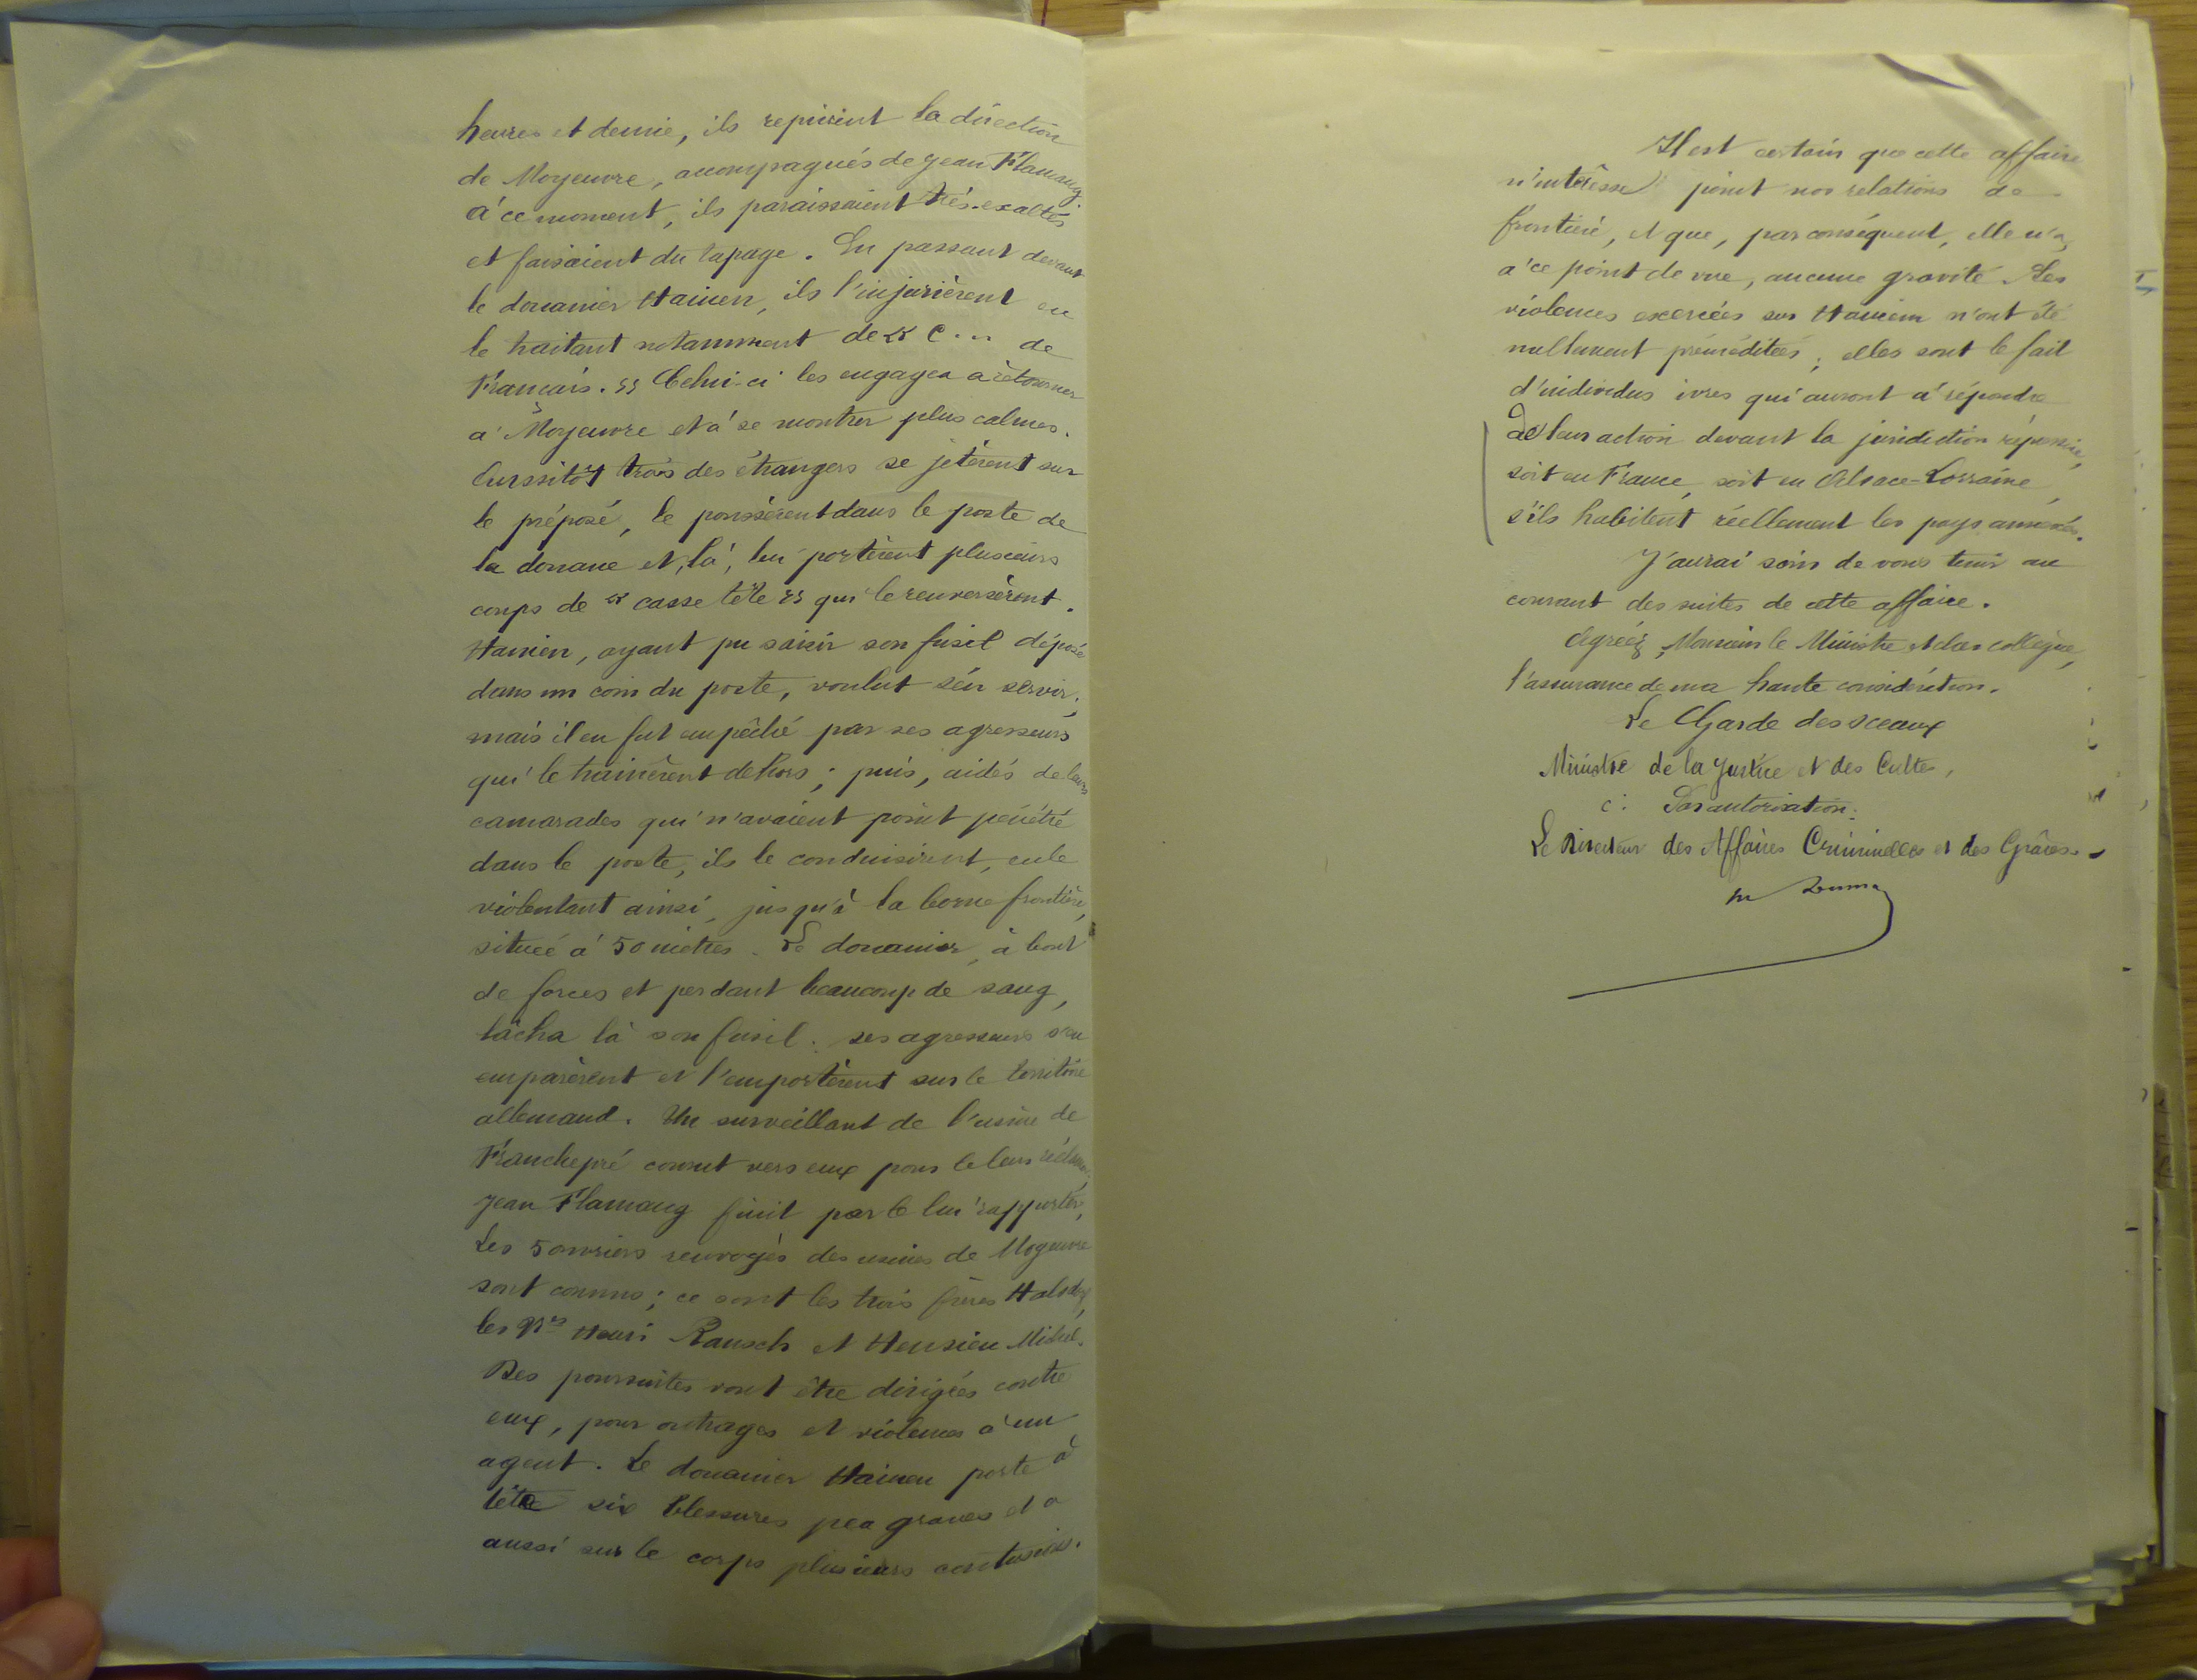 heures et demie, ils reprirent la direction
de Moyeuvre, accompagnés de Jean Flamang.
à ce moment, ils paraissaient très-exaltés
et faisaient du tapage. En passant devant
le douanier Hainen, ils l'injurièrent en
le traitant notamment de « C... de
Français. » Celui-ci les engagea à retourner
à Moyeuvre et à se montrer plus calmes.
Aussitôt trois des étrangers se jetèrent sur
le préposé, le poussèrent dans le poste de
la douane et, là, lui portèrent plusieurs
coups de « casse tête » qui le renversèrent.
Hainen, ayant pu saisir son fusil déposé
dans un coin du poste, voulut s'en servir;
mais il en fut empêché par ses agresseurs
qui le trainèrent dehors; puis, aidés de leurs
camarades qui n'avaient point pénétré
dans le poste, ils le conduisirent, en le
violentant ainsi, jusqu'à la borne frontière,
située à 50 mètres. Le douanier, à bout
de forces et perdant beaucoup de sang,
lâcha là son fusil; ses agresseurs s'en
emparèrent et l'emportèrent sur le territoire
allemand. Un surveillant de l'usine de
Franchepré courut vers eux pour le leur réclamer;
Jean Flamang finit par le lui rapporter.
Les 5 ouvriers renvoyés des usines de Moyeuvre
sont connus; ce sont les trois frères
les Nés Henri Rausch et Hensien Michel.
Des poursuites vont être dirigées contre
eux, pour outrages et violences à un
agent. Le douanier Hainen porte à
tête six blessures peu graves et a
aussi sur le corps plusieurs contusions.
Il est certain que cette affaire
n'intéresse point nos relations de
frontière, et que, par conséquent, elle n'a,
à ce point de vue, aucune gravité. Les
violences exercées sur Hainen n'ont été
nullement préméditées; elles sont le fait
d'individus ivres qui auront à répondre
de leur action devant la juridiction répressive,
soit en France, soit en Alsace-Lorraine,
s'ils habitent réellement les pays annexés.
J'aurai soin de vous tenir au
courant des suites de cette affaire.
Agréez, Monsieur le Ministre et cher collègue,
l'assurance de ma haute considération.
Le Garde des sceaux
Ministre de la Justice et des Cultes,
Par autorisation:
Le Directeur des Affaires Criminelles et des Grâces.